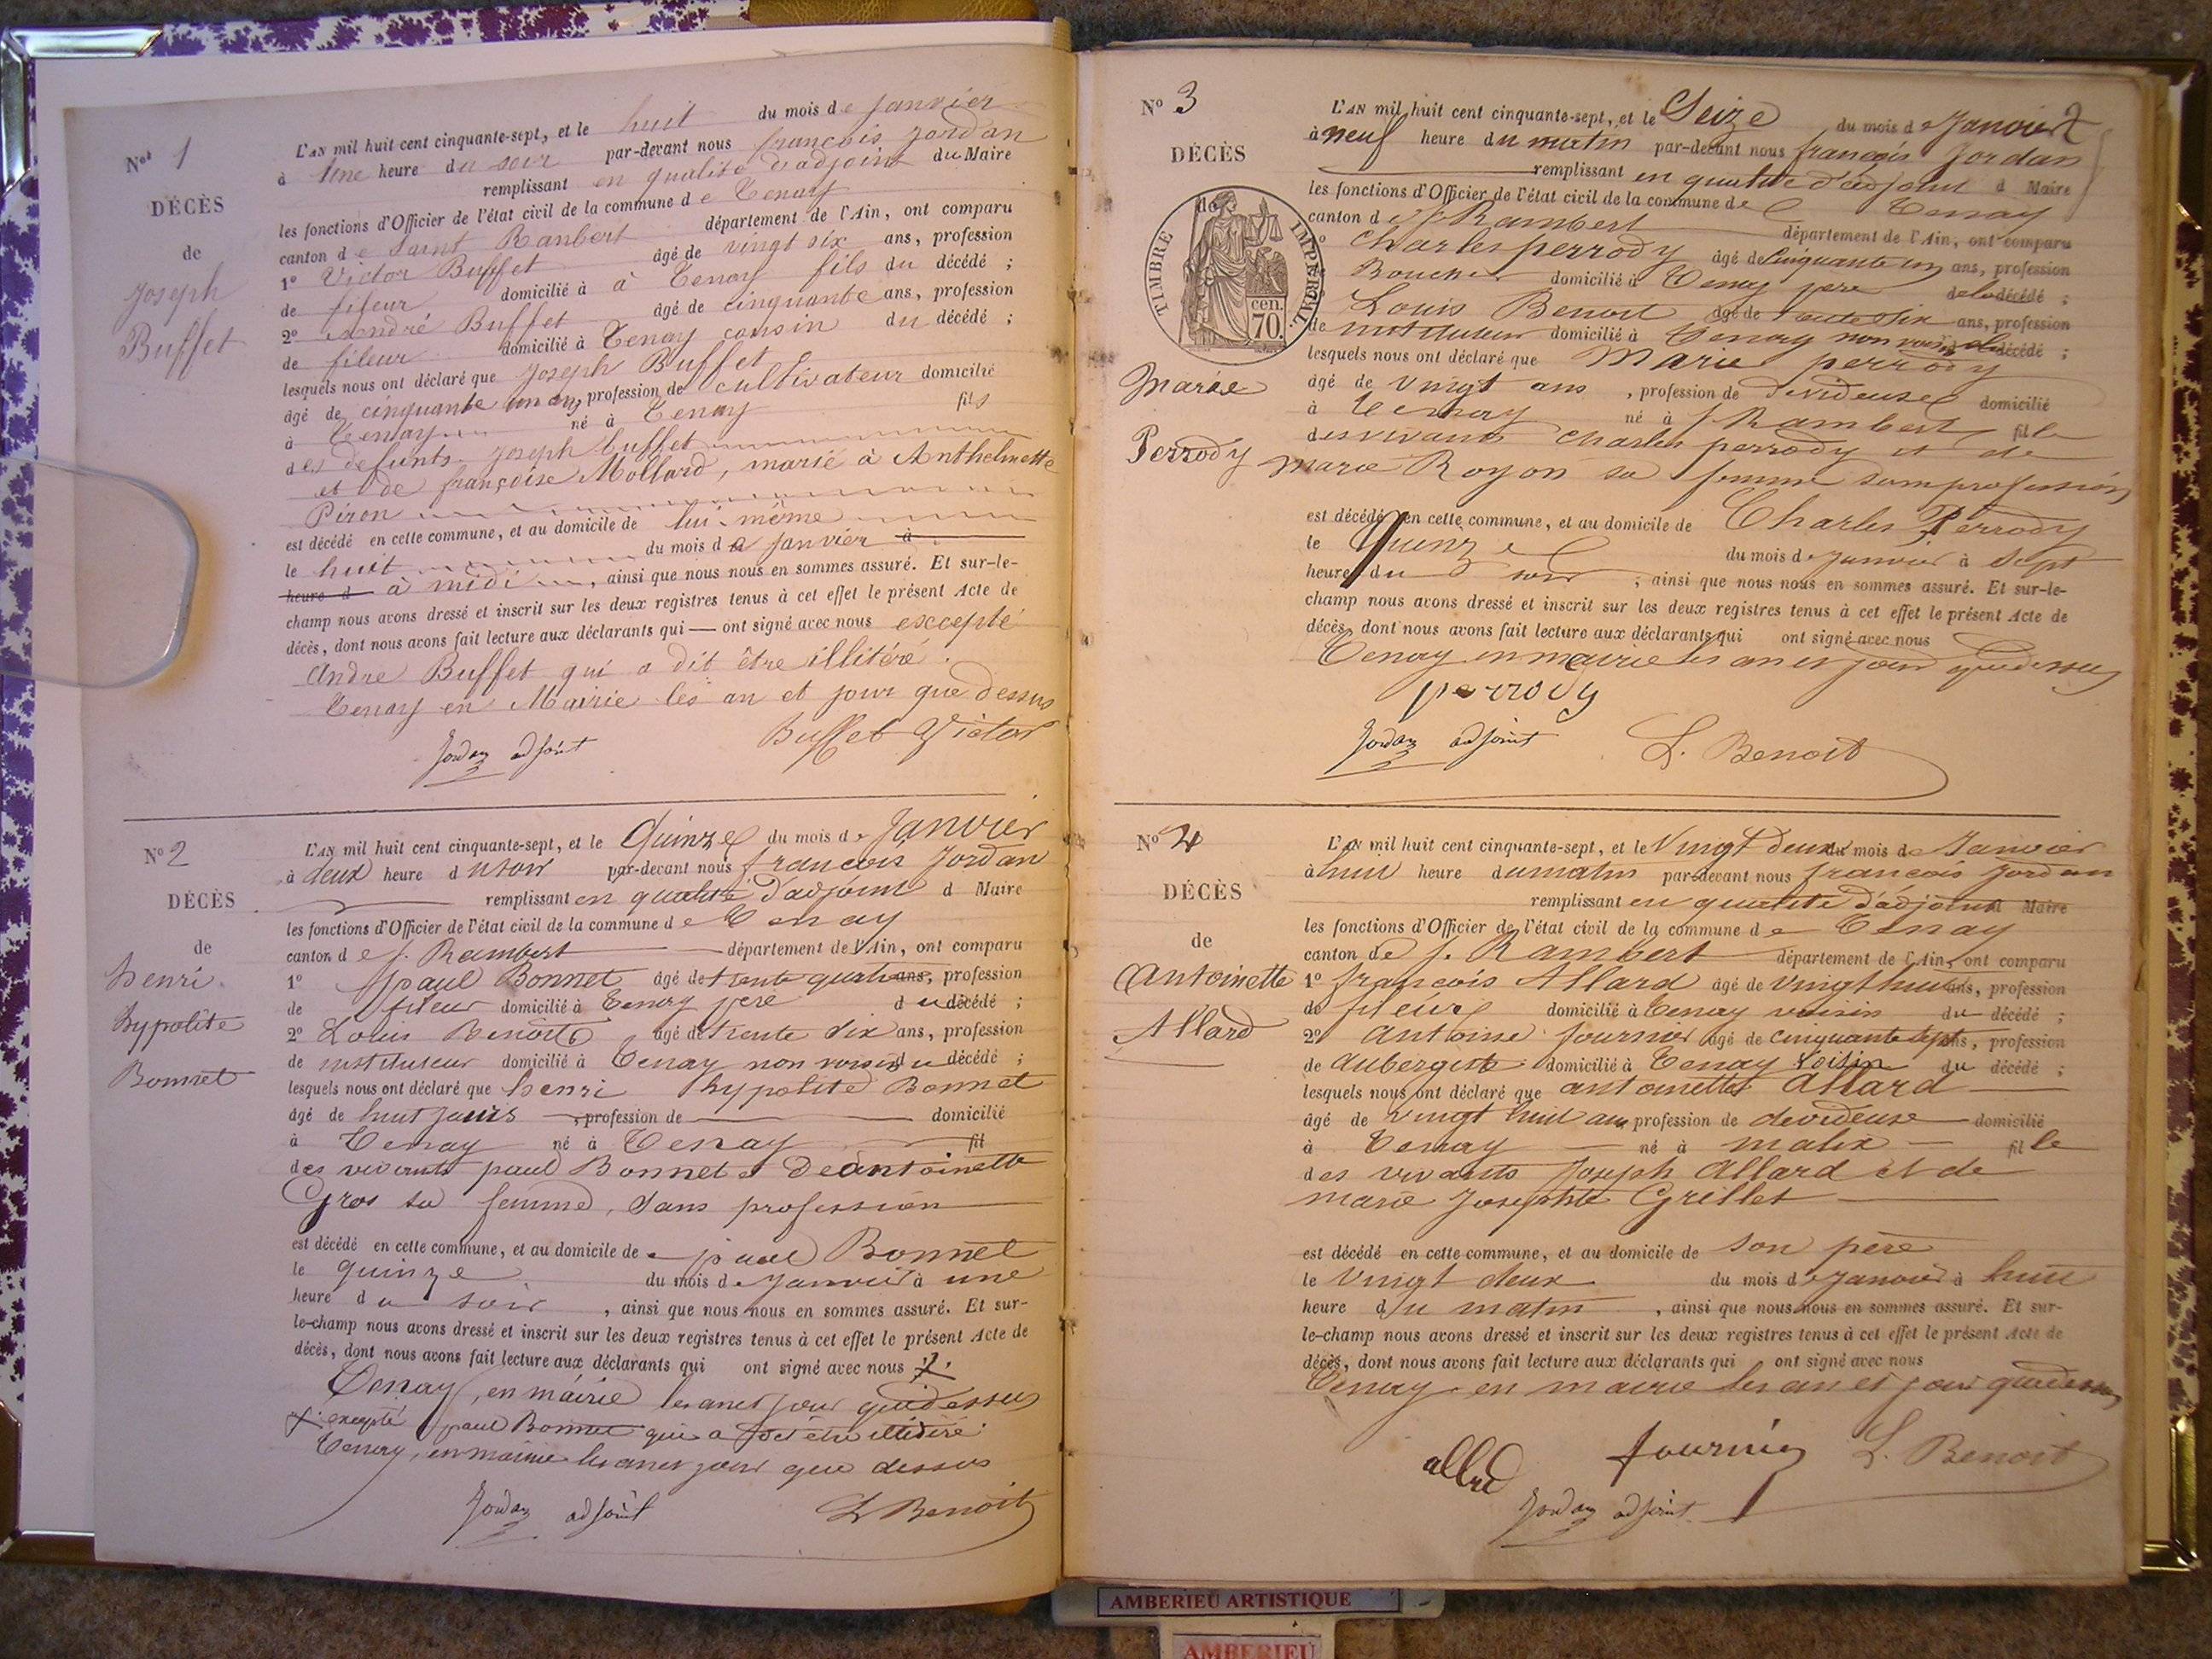 Nos 1
DÉCÈS
de
Joseph
Buffet
L'AN mil huit cent cinquante-sept, et le huit du mois de Janvier
à Une heure du soir par-devant nous françois Jordan
remplissant en qualité d'adjoint du Maire
les fonctions d'Officier de l'état civil de la commune de Tenay
canton de Saint Rambert département de l'Ain, ont comparu
1° Victor Buffet âgé de vingt six ans, profession
de fileur domicilié à à Tenay fils du décédé ;
2° André Buffet âgé de cinquante ans, profession
de fileur domicilié à Tenay cousin du décédé ;
lesquels nous ont déclaré que Joseph Buffet
âgé de cinquante un ans, profession de cultivateur domicilié
à Tenay né à Tenay fils
des defunts Joseph buffet
et de françoise Mollard, marié à Anthelmette
Piron
est décédé en cette commune, et au domicile de lui-même
le huit du mois de Janvier à
heure d à midi, ainsi que nous nous en sommes assuré. Et sur-le-
champ nous avons dressé et inscrit sur les deux registres tenus à cet effet le présent Acte de
décès, dont nous avons fait lecture aux déclarants qui ont signé avec nous excepté
André Buffet qui a dit être illitéré.
Tenay en Mairie les an et jour que dessus
Jordan adjoint Buffet Victor
No 2
DÉCÈS
de
henri
hypolite
Bonnet
L'AN mil huit cent cinquante-sept, et le Quinze du mois de Janvier
à deux heure du soir par-devant nous francois Jordan
remplissant en qualité d'adjoint d Maire
les fonctions d'Officier de l'état civil de la commune de Tenay
canton de S. Rambert département de l'Ain, ont comparu
1° paul Bonnet âgé de trente quatre ans, profession
de fileur domicilié à Tenay pere du décédé ;
2° Louis Benoit âgé de trente six ans, profession
de instituteur domicilié à Tenay non voisin du décédé ;
lesquels nous ont déclaré que henri hypolite Bonnet
âgé de huit jours, profession de domicilié
à Tenay né à Tenay fil
des vivants paul Bonnet et De antoinette
Gros sa femme, sans profession
est décédé en cette commune, et au domicile de paul Bonnet
le quinze du mois de Janvier à une
heure du soir, ainsi que nous nous en sommes assuré. Et sur-
le-champ nous avons dressé et inscrit sur les deux registres tenus à cet effet le présent Acte de
décès, dont nous avons fait lecture aux déclarants qui ont signé avec nous
Tenay, en mairie les an et jour que dessus
excepté paul Bonnet qui a dit être illitéré
Tenay, en mairie les an et jour que dessus
Jordan adjoint L Benoit
No 3
DÉCÈS
de
TIMBRE IMPÉRIAL
70 cen.
Marie
Perrody
2
L'AN mil huit cent cinquante-sept, et le Seize du mois de Janvier
à neuf heure du matin par-devant nous françois Jordan
remplissant en qualité d'adjoint d Maire
les fonctions d'Officier de l'état civil de la commune de Tenay
canton de S. Rambert département de l'Ain, ont comparu
1° Charles perrody âgé de Cinquante un ans, profession
Boucher domicilié à Tenay pere de la décédé ;
Louis Benoit âgé de trente six ans, profession
de instituteur domicilié à Tenay non voisin de la décédé ;
lesquels nous ont déclaré que Marie perrody
âgé de vingt ans, profession de devideuse domicilié
à Tenay né à S. Rambert fille
des vivants Charles perrody et de
Marie Royon sa femme sans profession
est décédé en cette commune, et au domicile de Charles Perrody
le Quinze du mois de Janvier à sept
heure du soir, ainsi que nous nous en sommes assuré. Et sur-le-
champ nous avons dressé et inscrit sur les deux registres tenus à cet effet le présent Acte de
décès, dont nous avons fait lecture aux déclarants qui ont signé avec nous
Tenay en mairie les an et jour que dessus
perrody
Jordan adjoint L. Benoit
No 4
DÉCÈS
de
Antoinette
Allard
L'AN mil huit cent cinquante-sept, et le Vingt deux du mois de Janvier
à huit heure du matin par-devant nous francois Jordan
remplissant en qualité d'adjoint Maire
les fonctions d'Officier de l'état civil de la commune de Tenay
canton de S. Rambert département de l'Ain, ont comparu
1° françois Allard âgé de vingt huit ans, profession
de fileur domicilié à Tenay voisin du décédé ;
2° Antoine fournier âgé de cinquante sept ans, profession
de aubergiste domicilié à Tenay voisin du décédé ;
lesquels nous ont déclaré que antoinette Allard
âgé de vingt huit ans profession de devideuse domicilié
à Tenay né à malix fille
des vivants Joseph Allard et de
marie Josephte Grillet
est décédé en cette commune, et au domicile de son père
le Vingt deux du mois de Janvier à huit
heure du matin, ainsi que nous nous en sommes assuré. Et sur-
le-champ nous avons dressé et inscrit sur les deux registres tenus à cet effet le présent Acte de
décès, dont nous avons fait lecture aux déclarants qui ont signé avec nous
Tenay en mairie les an et jour que dessus
fournier L. Benoit
Jordan adjoint
AMBERIEU ARTISTIQUE
AMBERIEU